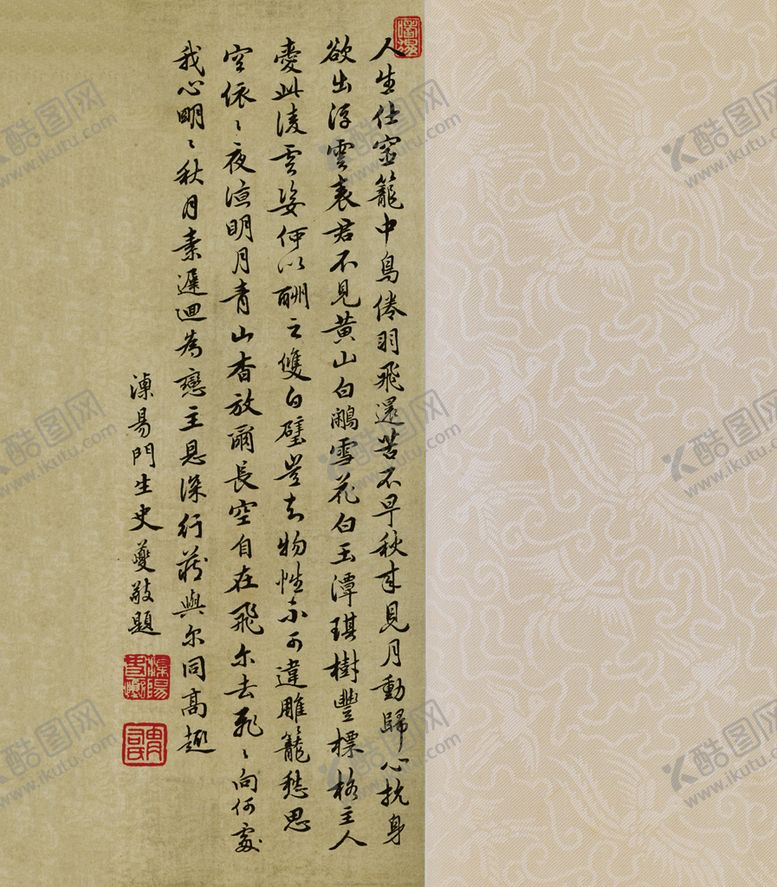 人生仕宦籠中鳥倦羽飛還苦不早秋來見月動歸心抗身
欲出浮雲表君不見黃山白鷴雪花白玉潭琪樹豐標格主人
愛此淩雲姿何以酬之雙白璧豈知物性不可違雕籠愁思
空依、夜涼明月青山杳放爾長空自在飛尔去飛、向何處
我心明、秋月素遲迴為戀主恩深行藏與尔同高趣
溧昜門生史夔敬題
溧陽史夔
K酷图网
www.ikutu.com